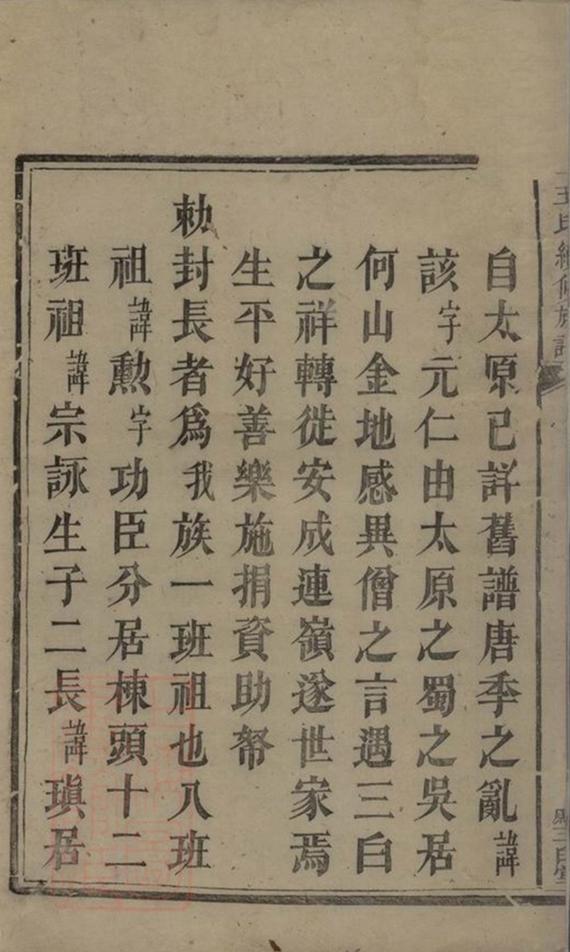 王氏續修族譜
三白堂
自太原已詳舊譜唐季之亂諱
該字元仁由太原之蜀之吳居
何山金地感異僧之言遇三白
之祥轉徙安成連嶺遂世家焉
生平好善樂施捐資助帑
勅封長者爲我族一班祖也八班
祖諱勲字功臣分居棟頭十二
班祖諱宗詠生子二長諱瑱居